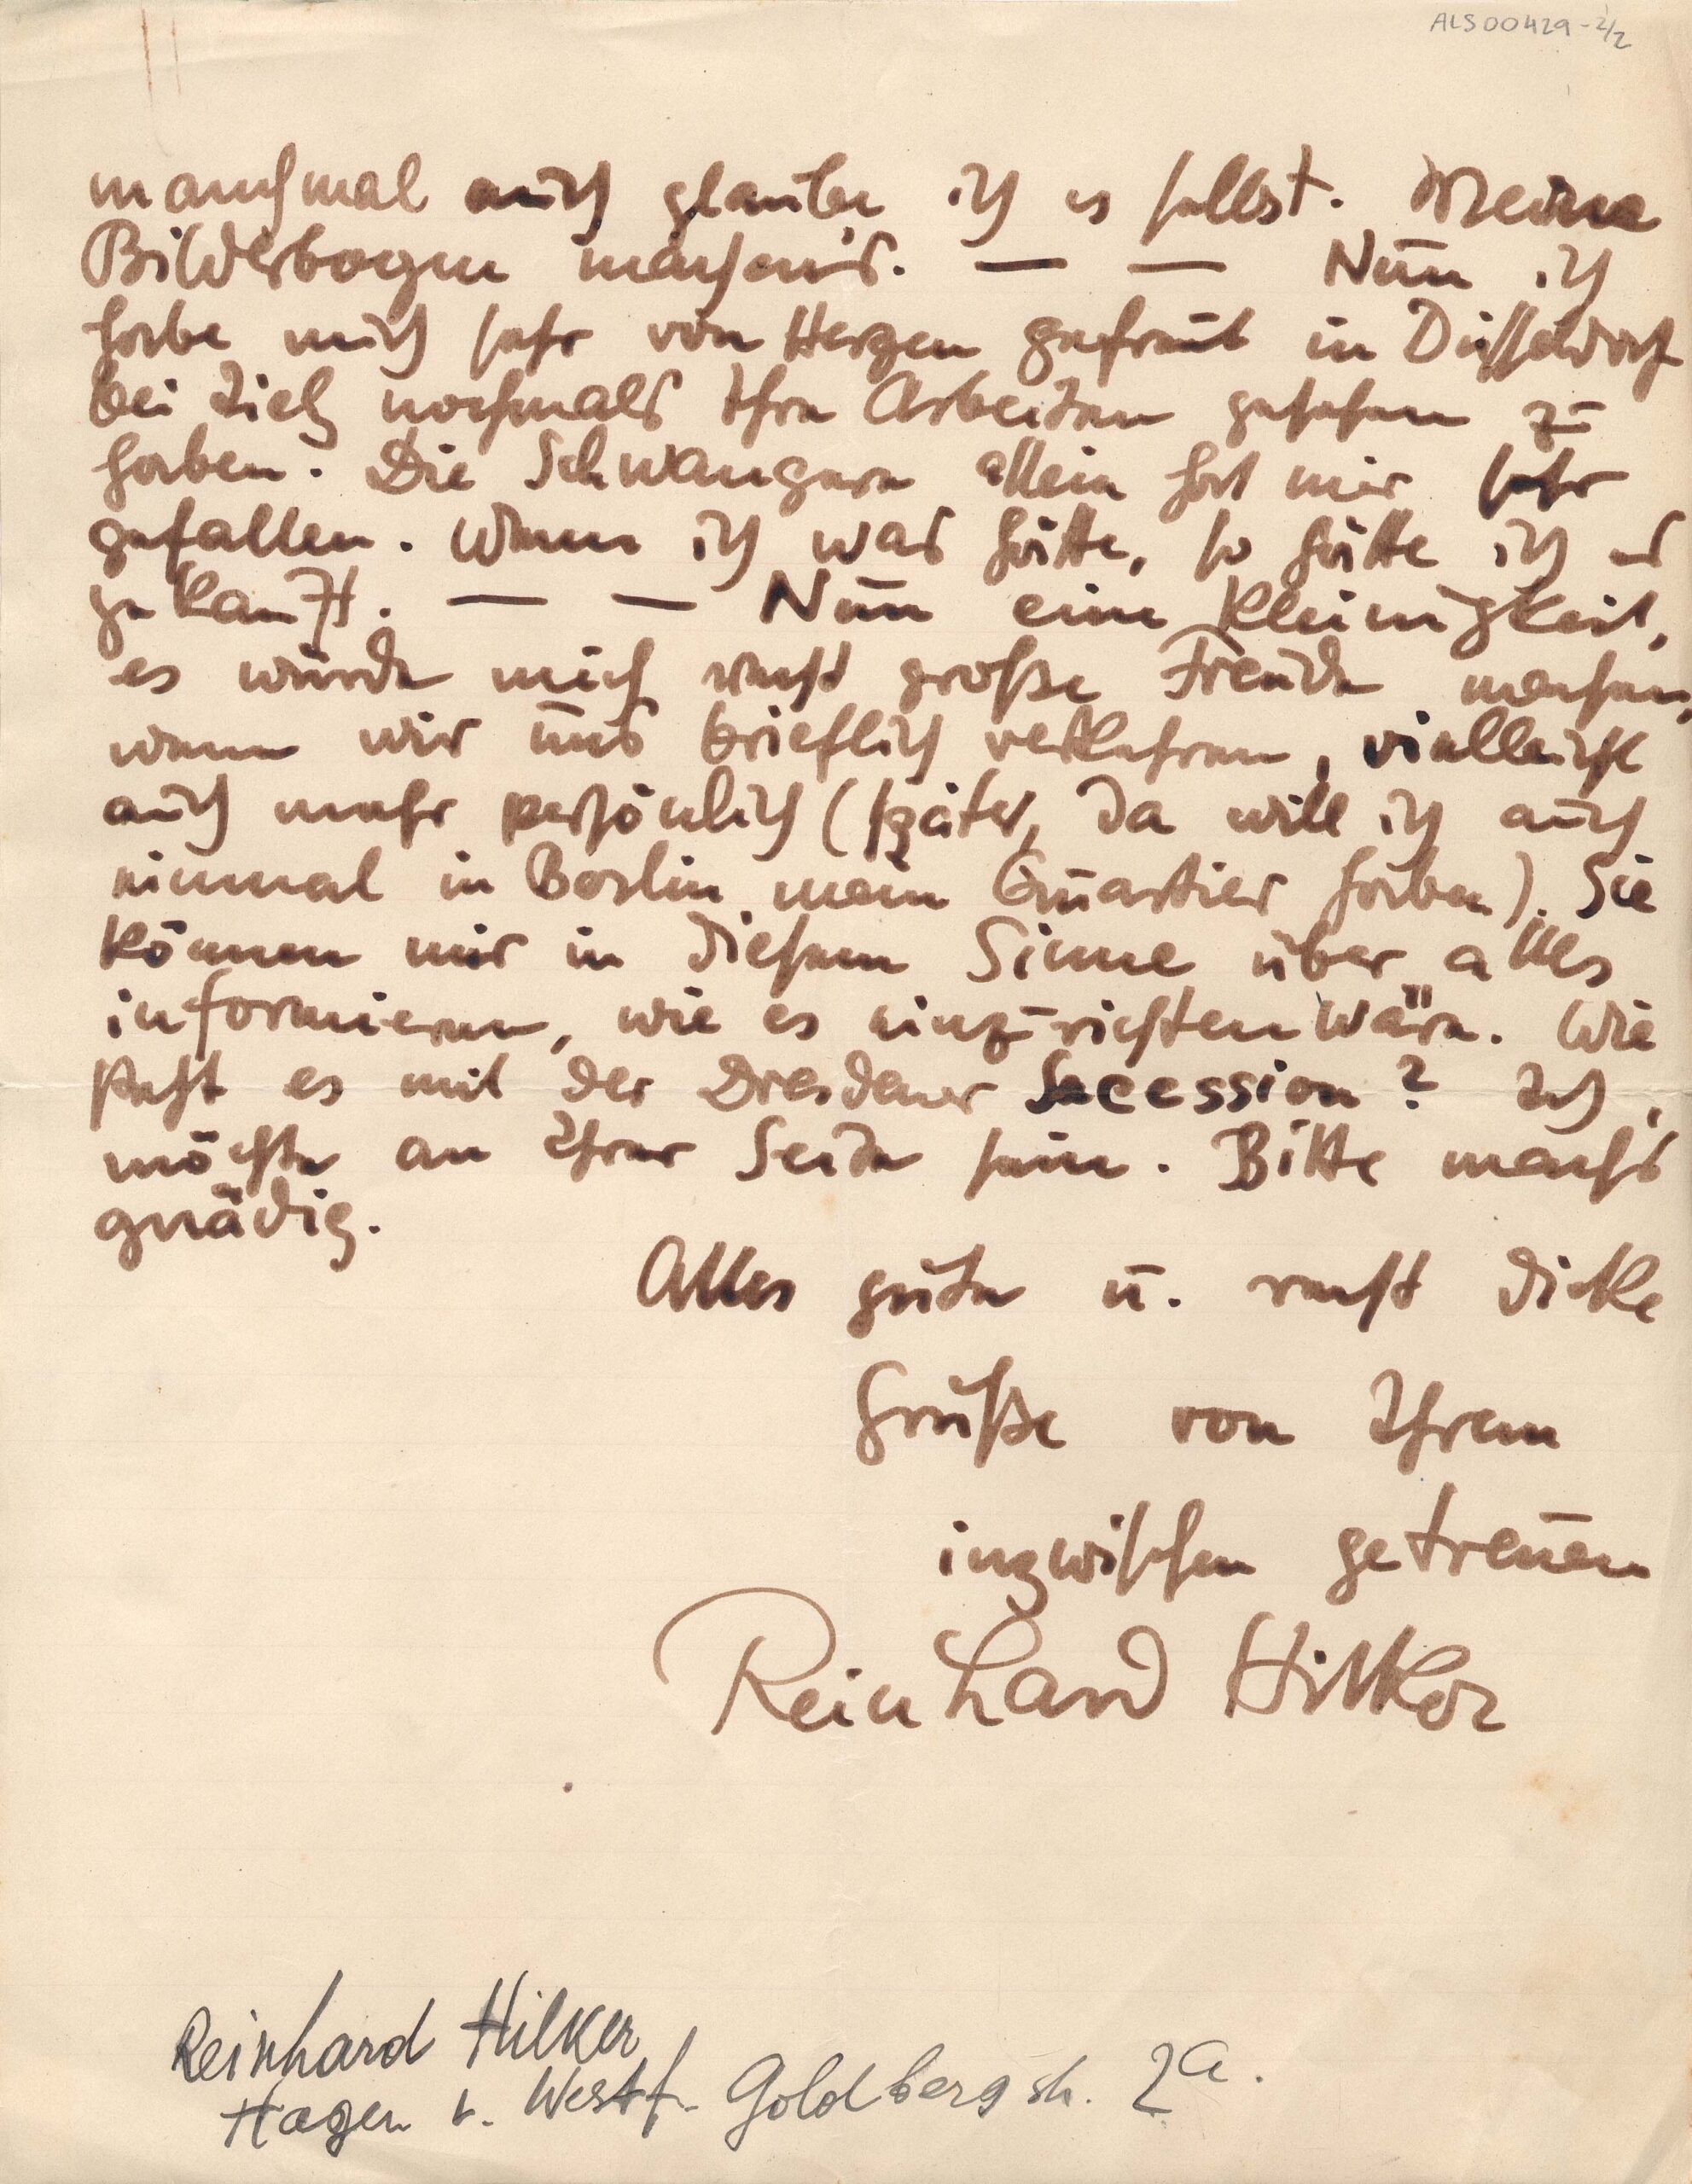 ALS00429-2/2
manchmal auch glaube ich es selbst. Meine
Bilderbogen machen's. — — Nun ich
habe mich sehr von Herzen gefreut in Düsseldorf
bei Dietz nochmals Ihre Arbeiten gesehen zu
haben. Die Schwangere allein hat mir sehr
gefallen. Wenn ich was hätte, so hätte ich es
gekauft. — — Nun eine Kleinigkeit,
es würde mich recht große Freude machen,
wenn wir uns brieflich verkehren, vielleicht
auch mehr persönlich (später, da will ich auch
einmal in Berlin mein Quartier haben). Sie
können mir in diesem Sinne über alles
informieren, wie es einzurichten wäre. Wie
steht es mit der Dresdener Secession? Ich
möchte an Ihrer Seite sein. Bitte machs
gnädig.
Alles gute u. recht dicke
Grüße von Ihrem
inzwischen getreuen
Reinhard Hilker
Reinhard Hilker
Hagen i. Westf. Goldbergstr. 2a.